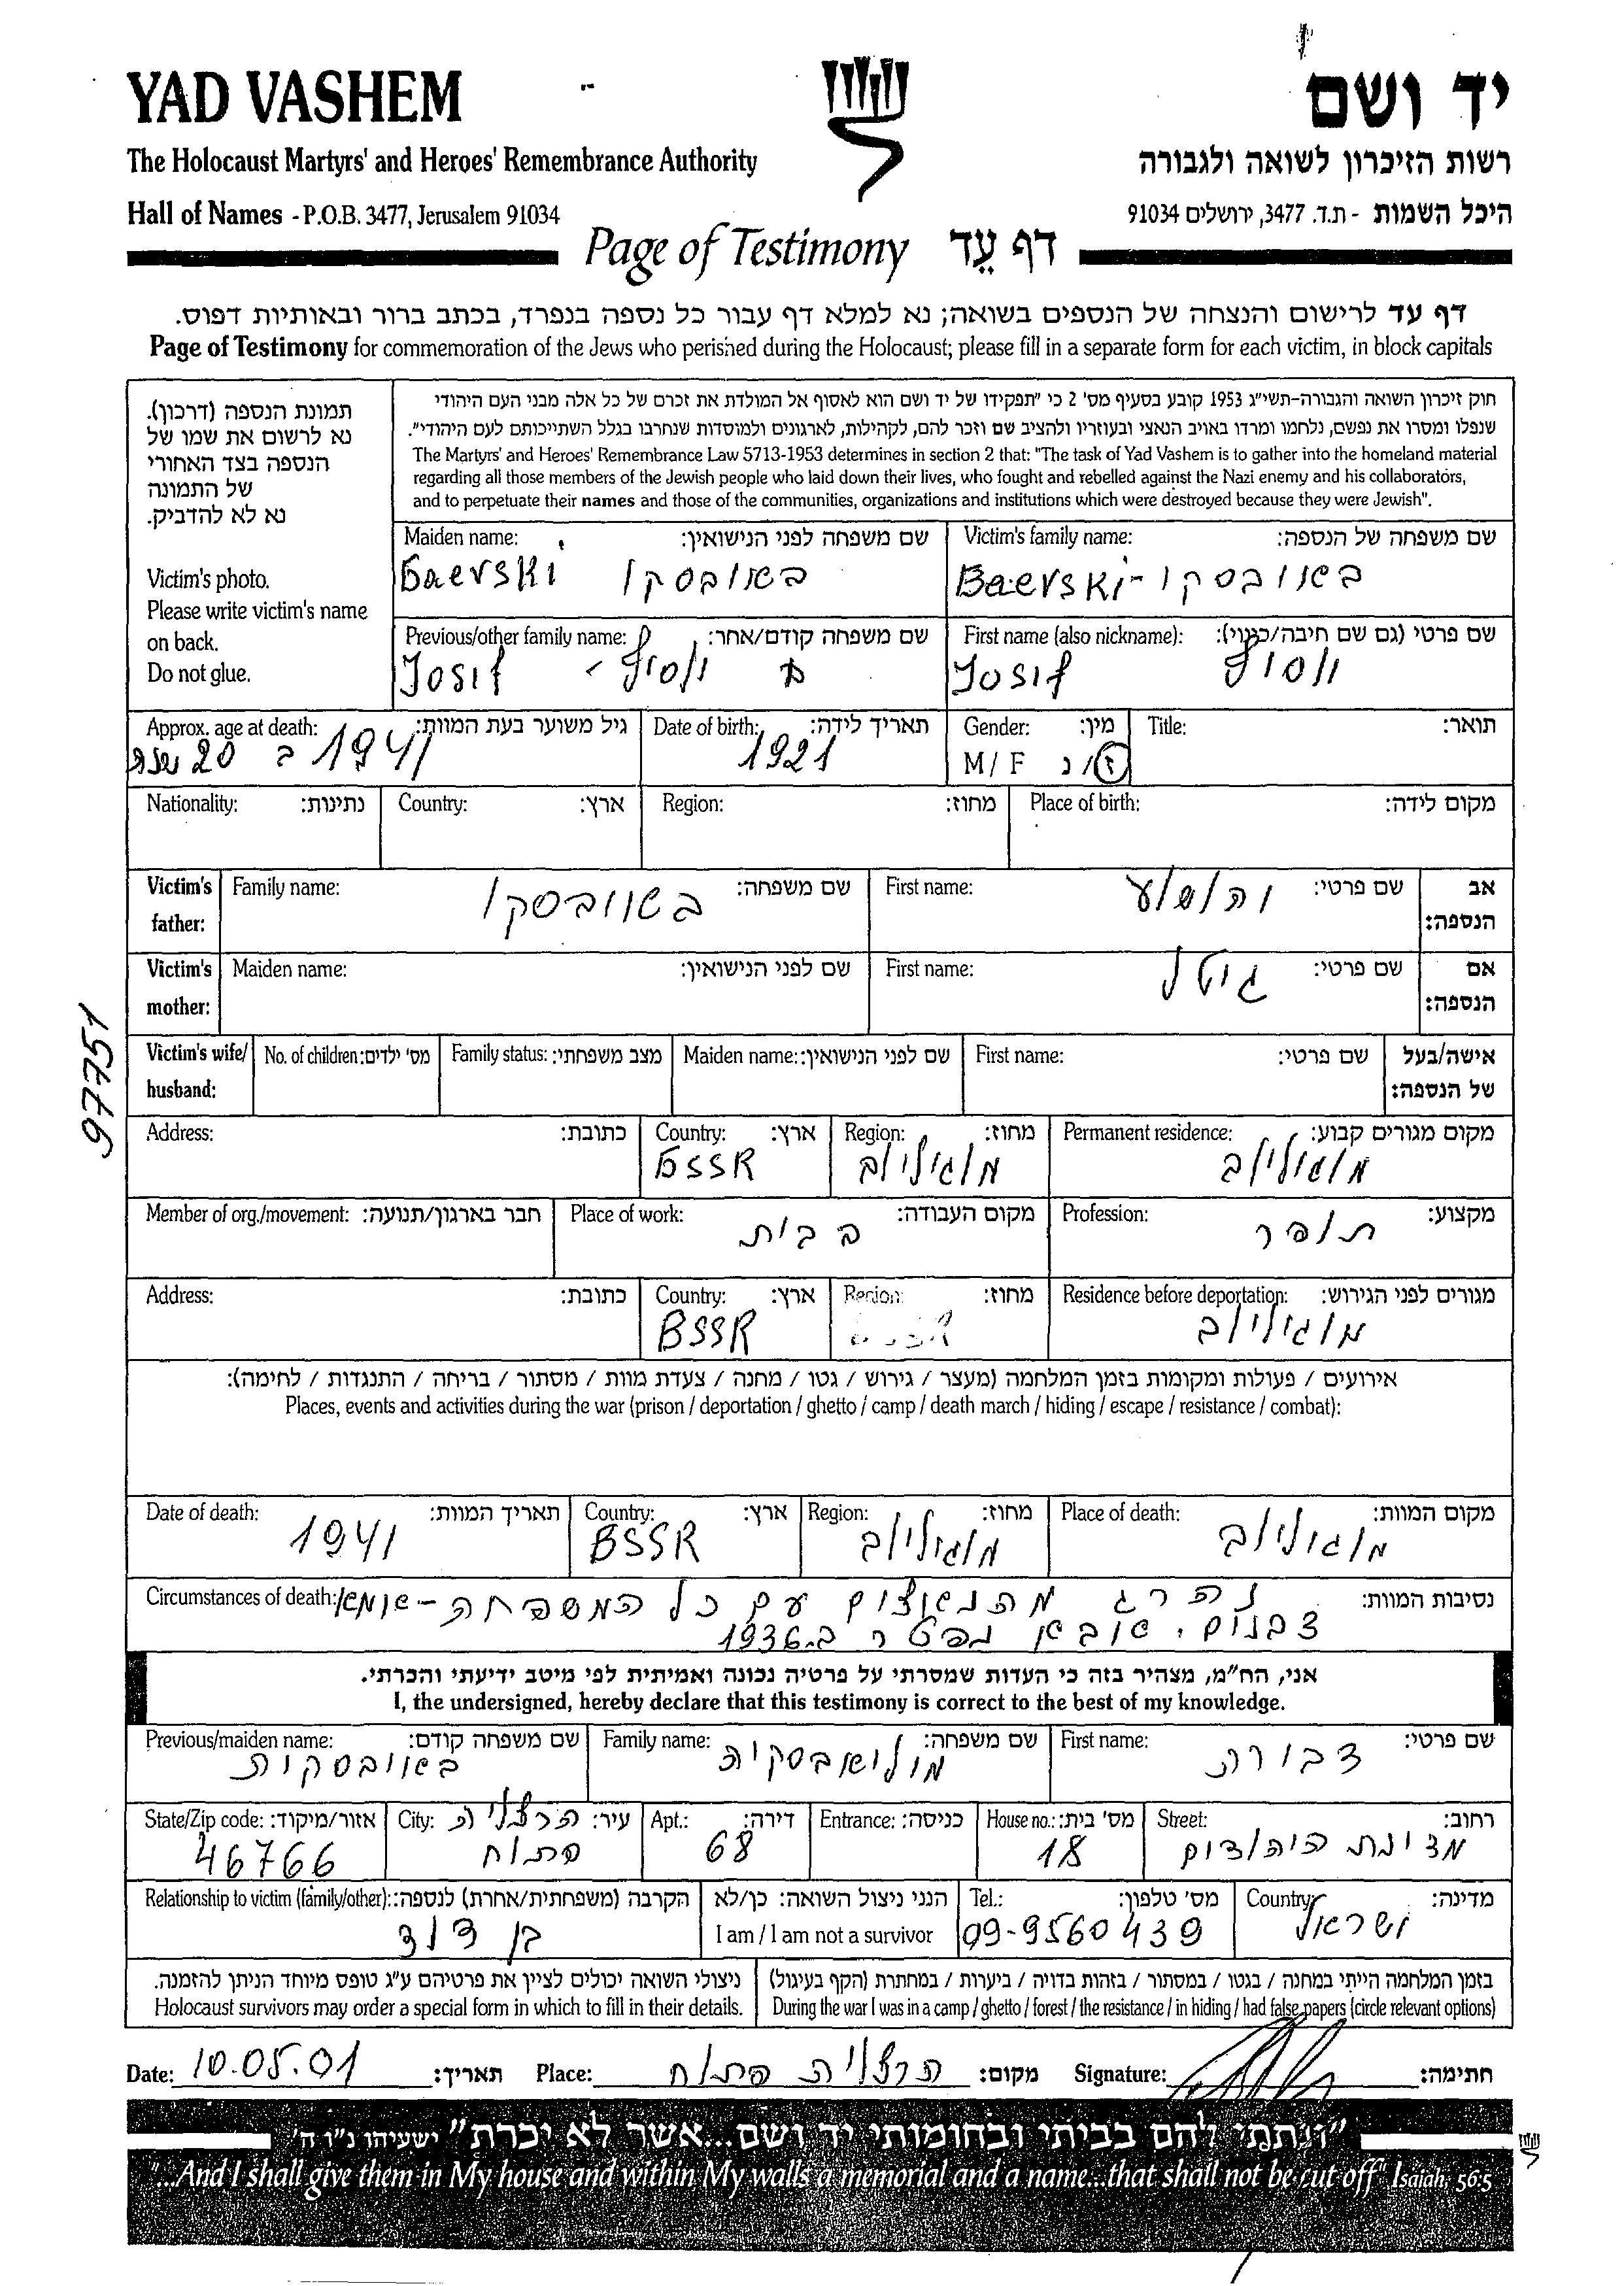 YAD VASHEM
יד ושם
The Holocaust Martyrs' and Heroes' Remembrance Authority
רשות הזיכרון לשואה ולגבורה
Hall of Names - P.O.B. 3477, Jerusalem 91034
היכל השמות - ת.ד. 3477, ירושלים 91034
Page of Testimony דף עֵד
דף עד לרישום והנצחה של הנספים בשואה; נא למלא דף עבור כל נספה בנפרד, בכתב ברור ובאותיות דפוס.
Page of Testimony for commemoration of the Jews who perished during the Holocaust; please fill in a separate form for each victim, in block capitals
תמונת הנספה (דרכון).
נא לרשום את שמו של
הנספה בצד האחורי
של התמונה
נא לא להדביק.
Victim's photo.
Please write victim's name
on back.
Do not glue.
חוק זיכרון השואה והגבורה-תשי"ג 1953 קובע בסעיף מס' 2 כי "תפקידו של יד ושם הוא לאסוף אל המולדת את זכרם של כל אלה מבני העם היהודי
שנפלו ומסרו את נפשם, נלחמו ומרדו באויב הנאצי ובעוזריו ולהציב שם וזכר להם, לקהילות, לארגונים ולמוסדות שנחרבו בגלל השתייכותם לעם היהודי".
The Martyrs' and Heroes' Remembrance Law 5713-1953 determines in section 2 that: "The task of Yad Vashem is to gather into the homeland material
regarding all those members of the Jewish people who laid down their lives, who fought and rebelled against the Nazi enemy and his collaborators,
and to perpetuate their names and those of the communities, organizations and institutions which were destroyed because they were Jewish".
Maiden name: שם משפחה לפני הנישואין:
Baevski באייבסקי
Victim's family name: שם משפחה של הנספה:
Baevski - באייבסקי
Previous/other family name: שם משפחה קודם/אחר:
Iosif - יוסיף
First name (also nickname): שם פרטי (גם שם חיבה/כינוי):
Iosif יוסיף
Approx. age at death: גיל משוער בעת המוות:
1941 ב 20 שנה
Date of birth: תאריך לידה:
1921
Gender: מין:
M / F ז/נ
Title: תואר:
Nationality: נתינות:
Country: ארץ:
Region: מחוז:
Place of birth: מקום לידה:
Victim's father: Family name: שם משפחה:
באייבסקי
First name: שם פרטי: אב הנספה:
יהושע
Victim's mother: Maiden name: שם לפני הנישואין:
First name: שם פרטי: אם הנספה:
גיטל
Victim's wife/ husband:
No. of children: מס' ילדים:
Family status: מצב משפחתי:
Maiden name: שם לפני הנישואין:
First name: שם פרטי:
אישה/בעל של הנספה:
Address: כתובת:
Country: ארץ:
BSSR
Region: מחוז:
מוגילוב
Permanent residence: מקום מגורים קבוע:
מוגילוב
Member of org./movement: חבר בארגון/תנועה:
Place of work: מקום העבודה:
בבית
Profession: מקצוע:
תופר
Address: כתובת:
Country: ארץ:
BSSR
Region: מחוז:
Residence before deportation: מגורים לפני הגירוש:
מוגילוב
אירועים / פעולות ומקומות בזמן המלחמה (מעצר / גירוש / גטו / מחנה / צעדת מוות / מסתור / בריחה / התנגדות / לחימה):
Places, events and activities during the war (prison / deportation / ghetto / camp / death march / hiding / escape / resistance / combat):
Date of death: תאריך המוות:
1941
Country: ארץ:
BSSR
Region: מחוז:
מוגילוב
Place of death: מקום המוות:
מוגילוב
Circumstances of death: נסיבות המוות:
נהרג מהנאצים עם כל המשפחה -
נפטר ב.1936
אני, הח"מ, מצהיר בזה כי העדות שמסרתי על פרטיה נכונה ואמיתית לפי מיטב ידיעתי והכרתי.
I, the undersigned, hereby declare that this testimony is correct to the best of my knowledge.
Previous/maiden name: שם משפחה קודם:
באייבסקית
Family name: שם משפחה:
First name: שם פרטי:
דבורה
State/Zip code: אזור/מיקוד:
46766
City: עיר:
הרצליה
פתוח
Apt.: דירה:
68
Entrance: כניסה:
House no.: מס' בית:
18
Street: רחוב:
מדינת היהודים
Relationship to victim (family/other): הקרבה (משפחתית/אחרת) לנספה:
בן דוד
הנני ניצול השואה: כן/לא
I am / I am not a survivor
Tel.: מס' טלפון:
09-9560439
Country: מדינה:
ישראל
ניצולי השואה יכולים לציין את פרטיהם ע"ג טופס מיוחד הניתן להזמנה.
Holocaust survivors may order a special form in which to fill in their details.
בזמן המלחמה הייתי במחנה / בגטו / במסתור / בזהות בדויה / ביערות / במחתרת (הקף בעיגול)
During the war I was in a camp / ghetto / forest / the resistance / in hiding / had false papers (circle relevant options)
Date: 10.05.01 תאריך: Place: הרצליה פתוח מקום: Signature: חתימה:
"ונתתי להם בביתי ובחומותי יד ושם...אשר לא יכרת" ישעיהו נ"ו ה'
"...And I shall give them in My house and within My walls a memorial and a name...that shall not be cut off" Isaiah 56:5
97751